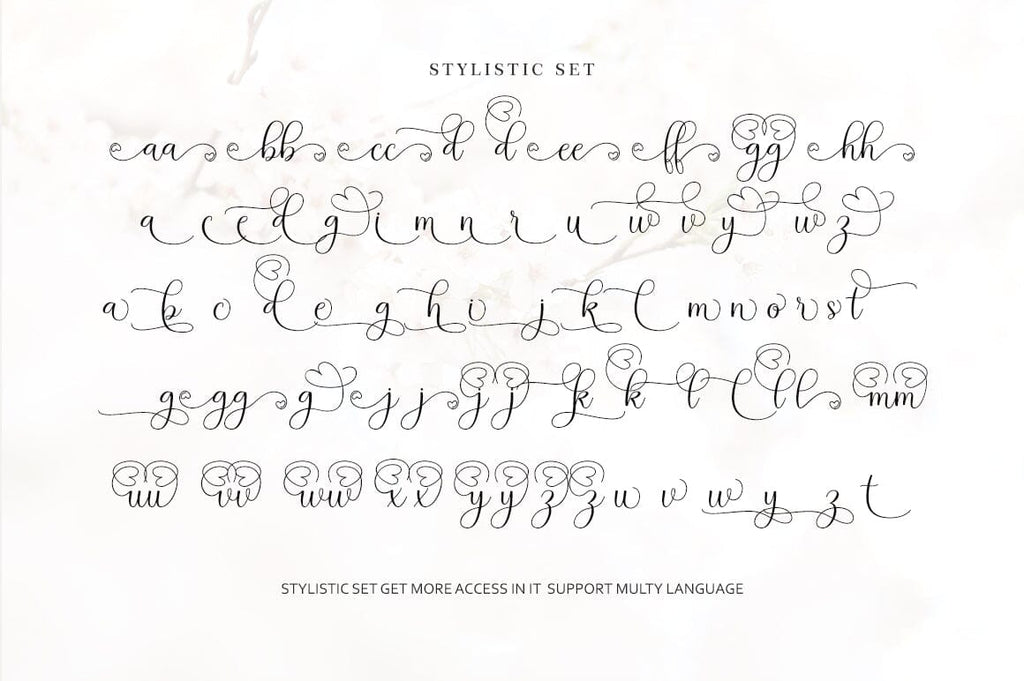 STYLISTIC SET
aa bb cc d d ee ff gg hh
a c e d g i m n r u w v y w z
a b c d e g h i j k l m n o r s t
g gg g j j j j k k l l ll mm
uu vv ww xx yy z z u v w y z t
STYLISTIC SET GET MORE ACCESS IN IT SUPPORT MULTY LANGUAGE